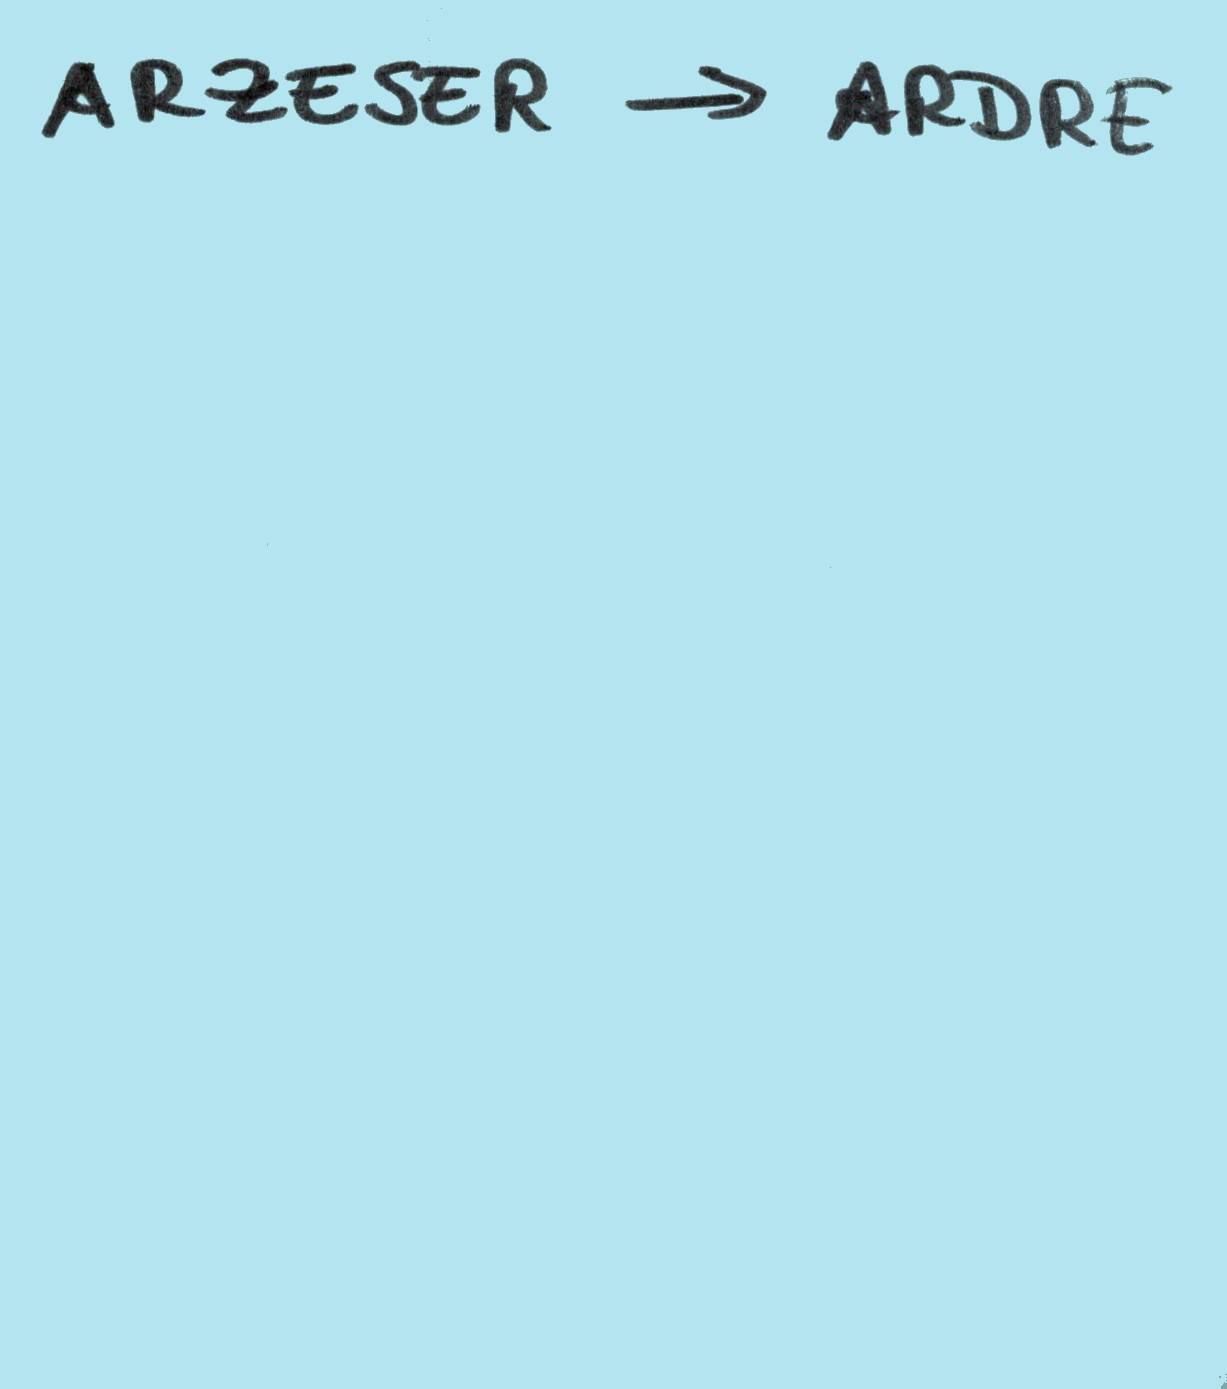 ARZESER → ARDRE